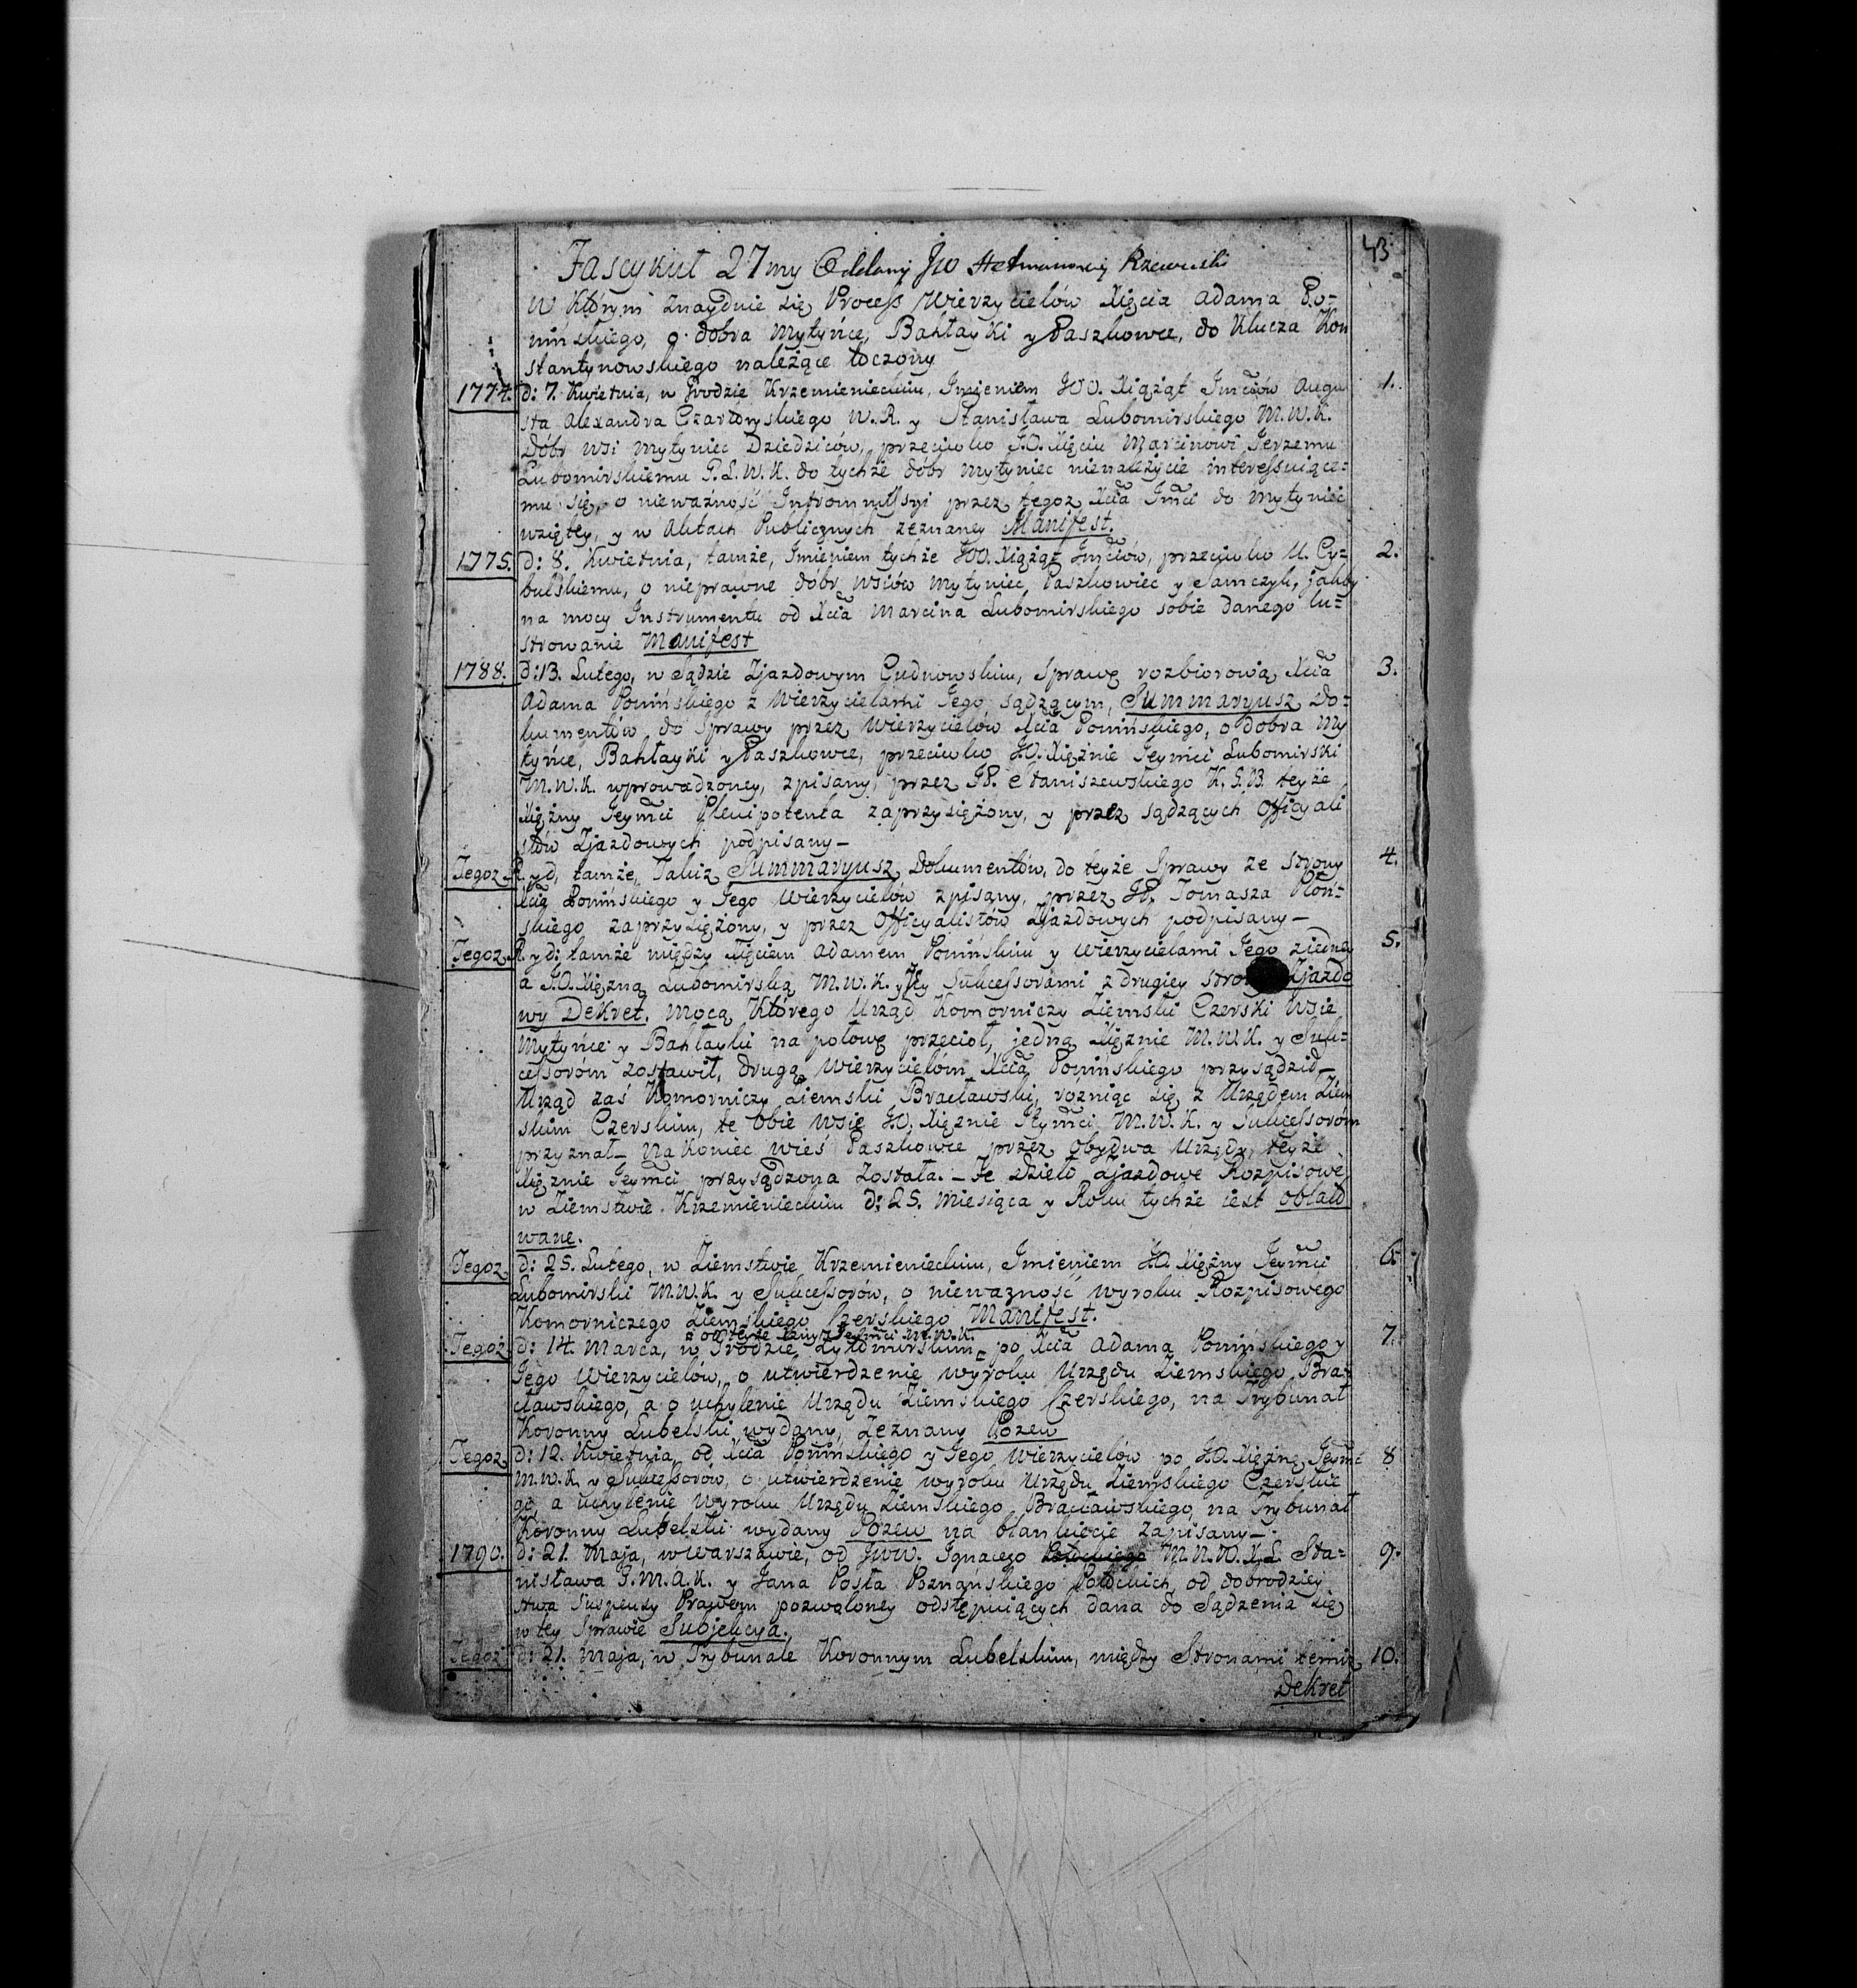 43
Fascykuł 27my Oddany JW Hetmanowej Rzewuski
w Którym znayduie się Process Wierzycielów Xięcia Adama Po=
nińskiego, o dobra Mytyńce, Bahłayki y Paszkowce, do Klucza Kon
stantynowskiego należące toczony
1774. d: 7. Kwietnia, w Grodzie Krzemienieckim, Imieniem JOO. Xiążąt Imciów Augu 1.
sta Alexandra Czartoryskiego W.R. y Stanisława Lubomirskiego M.W.K.
Dóbr wsi Mytyniec Dziedziców, przeciwko J.O. Xięciu Marcinowi Jerzemu
Lubomirskiemu G.L.W.K. do tychże dóbr Mytyniec nienależycie interessuiące=
mu się, o nieważność Intromissyi przez tegoż Xcia Imci do Mytyniec
wziętey, y w Aktach Publicznych zeznaney Manifest.
1775. d: 8. Kwietnia, tamże, Imieniem tychże JOO. Xiążąt Imciów, przeciwko U. Cy= 2.
bulskiemu, o nieprawne dóbr wsiów Mytyniec, Paszkowiec y Samczyk, jakby
na mocy Instrumentu od Xcia Marcina Lubomirskiego sobie danego lu=
strowanie Manifest
1788. d: 13. Lutego, w Sądzie Zjazdowym Cudnowskim, Sprawę rozbiorową Xcia 3.
Adama Ponińskiego z Wierzycielami Jego sądzącym, Summaryusz Do=
kumentów do Sprawy przez Wierzycielów Xcia Ponińskiego, o dobra My
tyńce, Bahłayki y Paszkowce, przeciwko J.O. Xiężnie Jeymci Lubomirski
M.W.K. wprowadzoney, zpisany, przez JP. Staniszewskiego K.G.B. teyże
Xiężny Jeymci Plenipotenta zaprzysiężony, y przez sądzących Officyali
stów Zjazdowych podpisany_
Tegoż R. y d, tamże, Takiż Summaryusz Dokumentów, do teyże Sprawy ze strony 4.
Xcia Ponińskiego y Jego Wierzycielów zpisany, przez JP. Tomasza Płoń=
skiego zaprzysiężony, y przez Officyalistów Zjazdowych podpisany_
Tegoż R. y d: tamże między Xięciem Adamem Ponińskim y Wierzycielami Jego z iedney 5.
a J.O. Xiężną Lubomirską M.W.K. y Jey Sukcessorami z drugiey Zjazdo
wy Dekret. Mocą Którego Urząd Komorniczy Ziemski Czerski wsie
Mytyńce y Bahłayki na połowę przeciął, jedną Xiężnie M.W.K. y Suk=
cessorom zostawił, drugą Wierzycielóm Xcia Ponińskiego przysądził_
Urząd zaś Komorniczy Ziemski Bracławski, różniąc się z Urzędem Ziem
skim Czerskim, te obie wsie J.O. Xiężnie Jeymci M.W.K. y Sukcessoróm
przyznał_ Nakoniec wieś Paszkowce przez obydwa Urzędy, teyże
Xiężnie Jeymci przysądzona została. _ Te Dzieło Zjazdowe Rozpisowe
w Ziemstwie Krzemienieckim d: 25. Miesiąca y Roku tychże iest oblato
wane.
Tegoż d: 25. Lutego, w Ziemstwie Krzemienieckim, Imieniem J.O. Xiężny Jeymci 6.
Lubomirski M.W.K. y Sukcessorów, o nieważność wyroku Rozpisowego
Komorniczego Ziemskiego Czerskiego Manifest.
od teyże Xiężny Jeymci M.W.K.
Tegoż d: 14. Marca, w Grodzie Żytomirskim po Xcia Adama Ponińskiego y 7.
Jego Wierzycielów, o utwierdzenie wyroku Urzędu Ziemskiego Bra=
cławskiego, a o uchylenie Urzędu Ziemskiego Czerskiego, na Trybunał
Koronny Lubelski wydany, zeznany Pozew
Tegoż d: 12. Kwietnia, od Xcia Ponińskiego y Jego Wierzycielów po J.O. Xiężnę Jeymć 8
M.W.K. y Sukcessorów, o utwierdzenie wyroku Urzędu Ziemskiego Czerskie
go, a uchylenie Wyroku Urzędu Ziemskiego Bracławskiego, na Trybunał
Koronny Lubelski wydany Pozew na blankiecie zapisany_
1790. d: 21. Maja, w Warszawie, od JWW. Ignacego Potockiego M.N.W.X.L. Sta= 9.
nisława G.M.A.K. y Jana Posła Poznańskiego Potockich, od dobrodziey
stwa Suspensy Prawem pozwoloney odstępuiących dana do Sądzenia się
w tey Sprawie Subjekcya.
Tegoż d: 21. Maja, w Trybunale Koronnym Lubelskim, między Stronami temiż 10.
Dekret